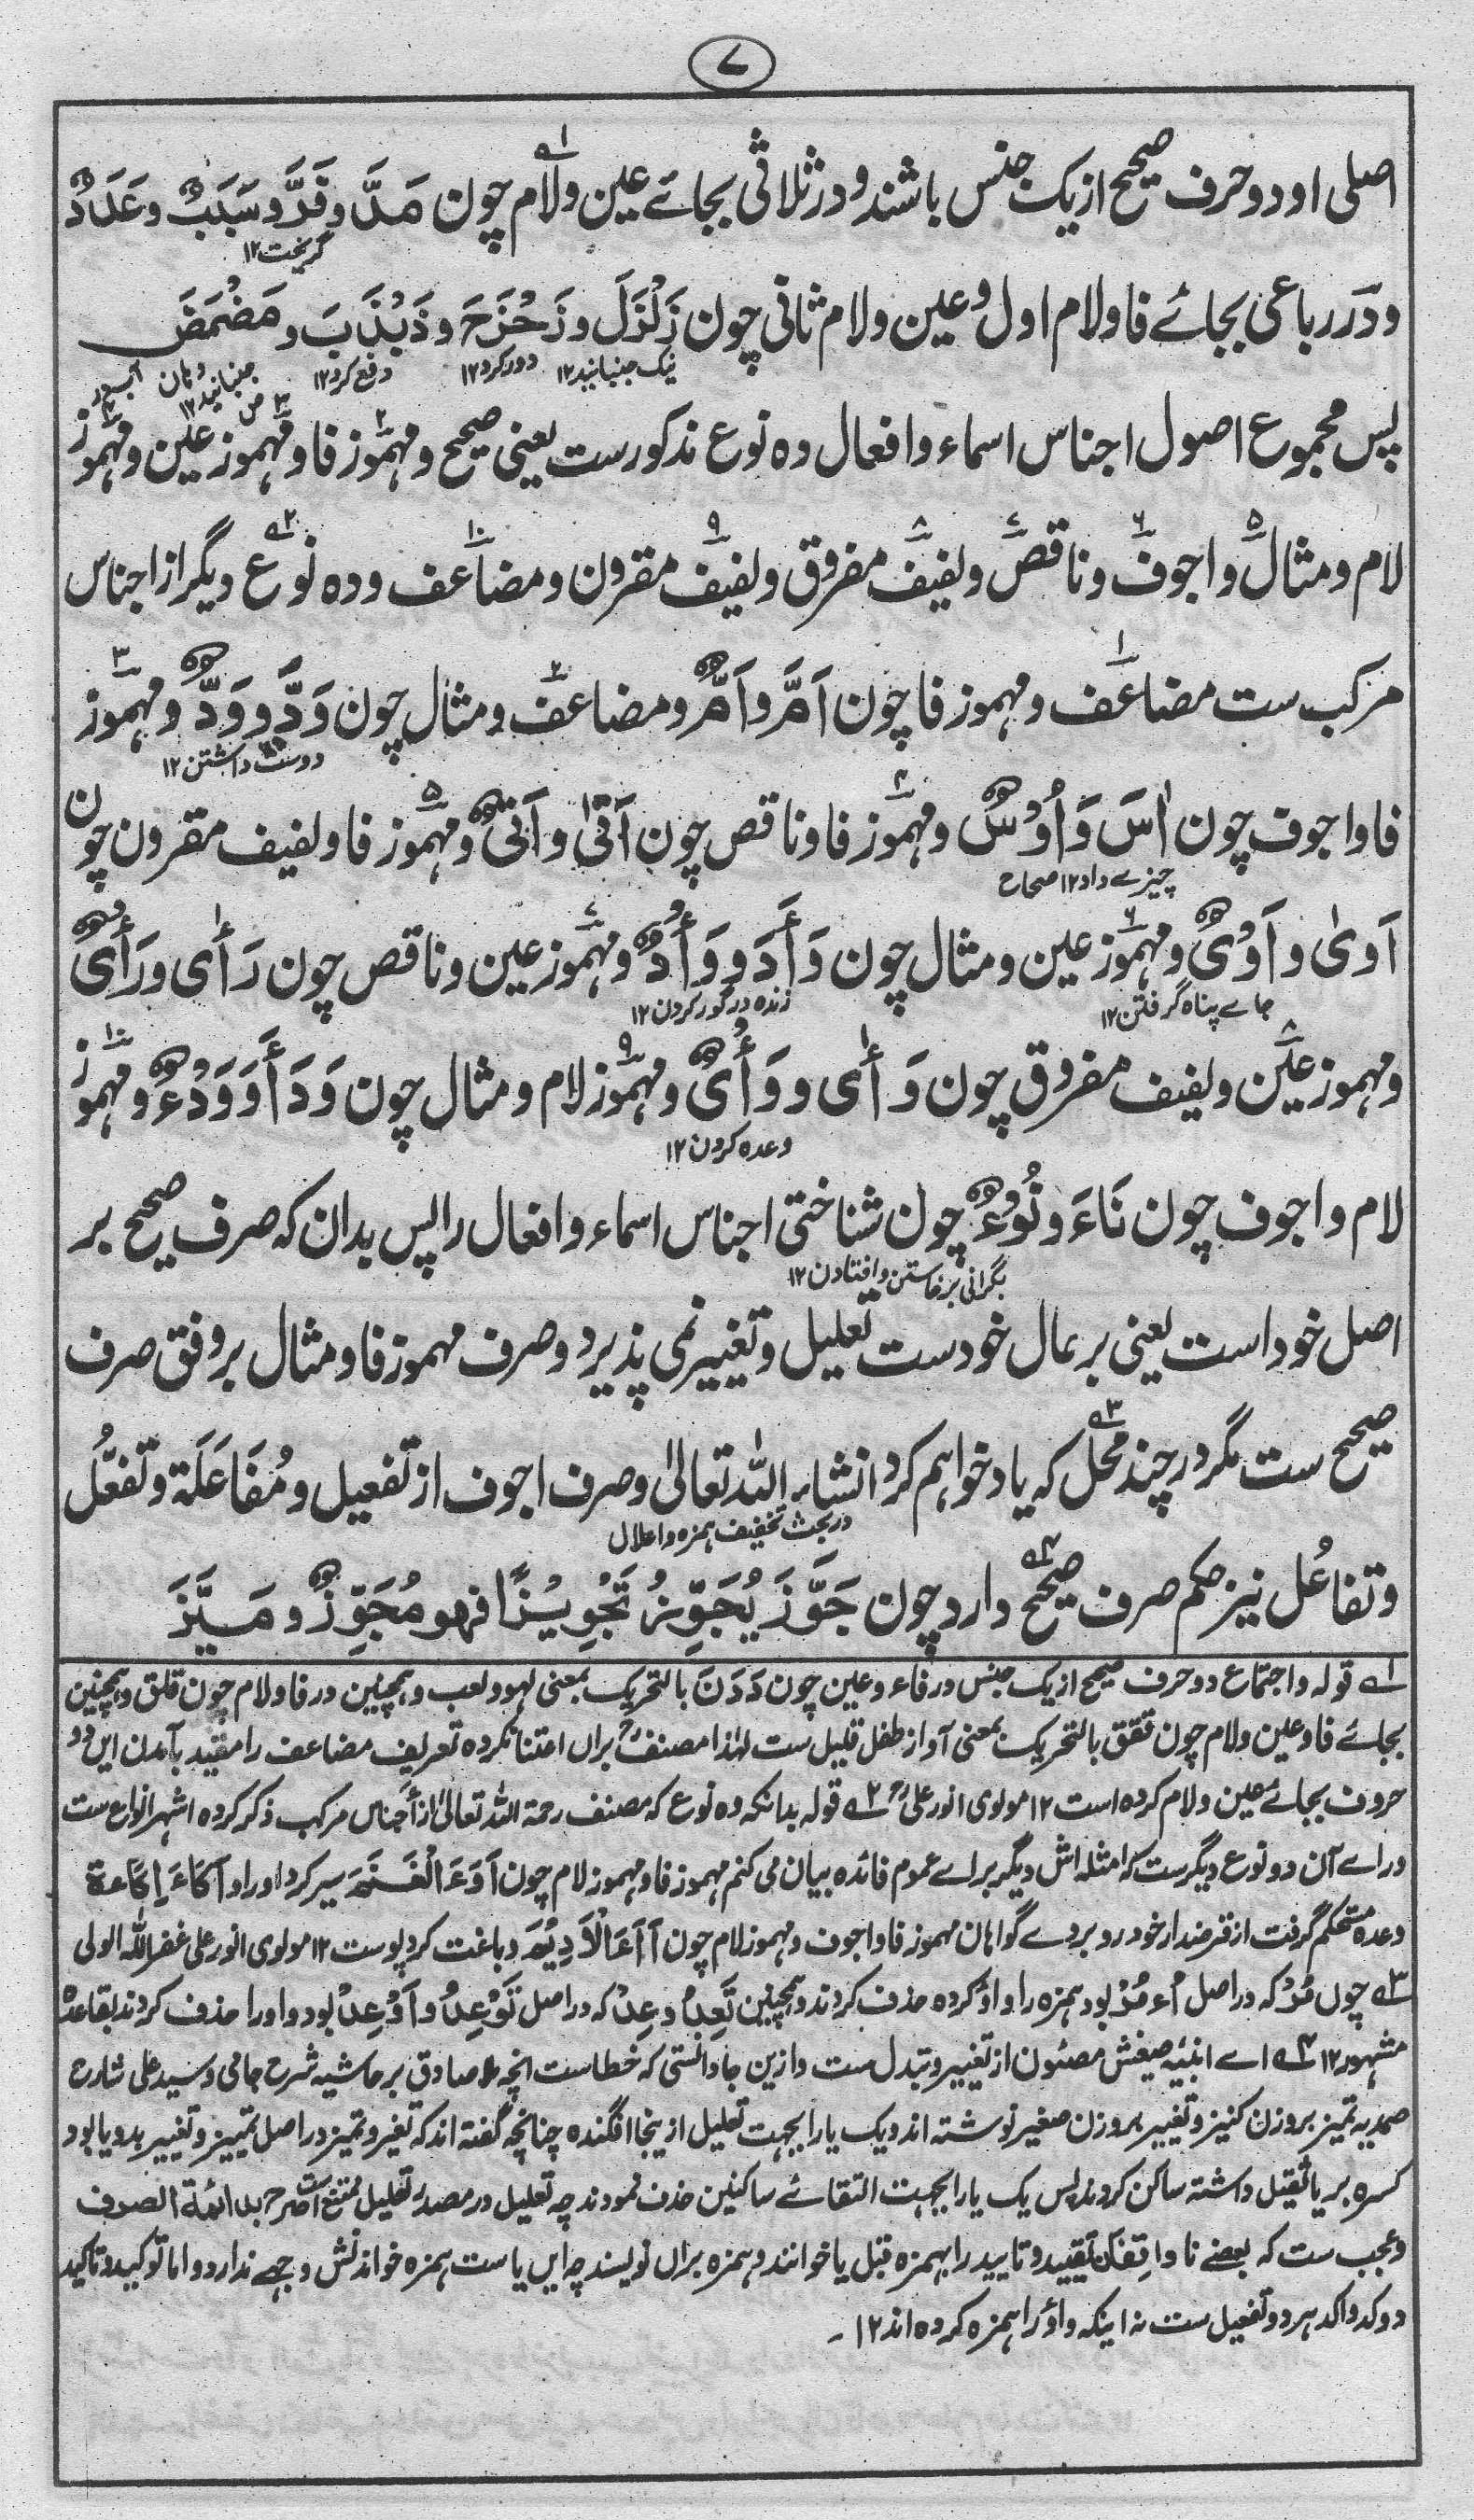 ۷
اصلی او دو حرف صحیح از یک جنس باشند و در ثلاثی بجائے عین و لام چون مَدَّ و فَرَّ و سَبَبٌ و عَدَدٌ
گریخت ۱۲
و در رباعی بجائے فا و لام اول و عین و لام ثانی چون زَلْزَلَ و زَحْزَحَ و ذَبْذَبَ و مَضْمَضَ
نیک جنبانید ۱۲ دور کرد ۱۲ دفع کرد ۱۲ جنبانید ۱۲ دہان
پس مجموع اصول اجناس اسماء و افعال دہ نوع مذکورست یعنی صحیح و مہموز فا و مہموز عین و مہموز
لام و مثال و اجوف و ناقص و لفیف مفروق و لفیف مقرون و مضاعف و دہ نوع دیگر از اجناس
مرکب ست مضاعف و مہموز فا چون اَمَّ و اَمٌّ و مضاعف و مثال چون وَدَّ و وَدٌّ و مہموز
دوست داشتن ۱۲
فا و اجوف چون اٰسَ وَ اَوْسٌ و مہموز فا و ناقص چون اَتٰی و اَتْیٌ و مہموز فا و لفیف مقرون چون
چیزے داد ۱۲ صحاح
اَوٰی و اَوْیٌ و مہموز عین و مثال چون وَأَدَ و وَأْدٌ و مہموز عین و ناقص چون رَأٰی و رَأْیٌ
جاے پناہ گرفتن ۱۲ زندہ در گور کردن ۱۲
و مہموز عین و لفیف مفروق چون وَأٰی و وَأْیٌ و مہموز لام و مثال چون وَدَأَ وَ وَدْءٌ و مہموز
وعدہ کردن ۱۲
لام و اجوف چون نَاءَ و نُوْءٌ چون شناختی اجناس اسماء و افعال را پس بدان کہ صرف صحیح بر
بگرانی برخاستن و افتادن ۱۲
اصل خود است یعنی بر عمال خودست تعلیل و تغییر نمی پذیرد و صرف مہموز فا و مثال بر وفق صرف
صحیح ست مگر در چند محل کہ یاد خواہم کرد انشاء اللہ تعالیٰ و صرف اجوف از تفعیل و مُفَاعَلَة و تفعُّل
در بحث تخفیف ہمزہ و اعلال
و تفاعُل نیز حکم صرف صحیح دارد چون جَوَّزَ یُجَوِّزُ تَجْوِیْزًا فهو مُجَوِّزٌ و مَیَّزَ
۱ قولہ و اجتماع دو حرف صحیح از یک جنس در فاء و عین چون دَدَنَ بالتحریک بمعنی لہو و لعب و ہمچنین در فا و لام چون قلق و ہمچنین
بجائے فا و عین و لام چون ققق بالتحریک بمعنی آواز طفل قلیل ست لہٰذا مصنف براں اعتنا نکردہ تعریف مضاعف را مقید بآمدن این دو
حروف بجائے عین و لام کردہ است ۱۲ مولوی انور علی ۲ قولہ بدانکہ دہ نوع کہ مصنف رحمۃ اللہ تعالیٰ از اجناس مرکب ذکر کردہ اشہر انواع ست
وراے آن دو نوع دیگرست کہ امثلہ اش دیگر براے عموم فائدہ بیان می کنم مہموز فا و مہموز لام چون
وعدہ مستحکم گرفت از قرضدار خود روبروے گواہان مہموز فا و اجوف و مہموز لام چون دباغت کرد پوست ۱۲ مولوی انور علی غفراللہ الولی
۳ چوں مُرْ کہ در اصل بود ہمزہ را واؤ کردہ حذف کردند و ہمچنین تَعِدُ و عِدْ کہ در اصل تَوْعِدُ و اَوْعِدْ بود واو را حذف کردند بقاعدہ
مشہور ۱۲ ۴ اے ابنیہ صیغش مصئون از تغییر و تبدل ست و ازین جا دانستی کہ خطاست انچہ صادق بر حاشیہ شرح جامی و سید علی شارح
صمدیہ تمیز بروزن کنیز و تغییر بروزن صغیر نوشتہ اند و یک یا را بجہت تعلیل ازینجا افگندہ چنانچہ گفتہ اند کہ تغیر و تمیز در اصل تمییز و تغییر بدو یا بود
کسرہ بر یا ثقیل داشتہ ساکن کردند پس یک یا را بجہت التقائے ساکنین حذف نمودند چہ تعلیل در مصدر تفعیل ممتنع است ائمة الصرف
و عجب ست کہ بعضے ناواقفان تقیید و تایید را بہمزہ قبل یا خوانند و ہمزہ براں نویسند چہ ایں یا ست ہمزہ خواندنش وجہے ندارد و اما توکید و تاکید
و وکد و اکد ہر دو تفعیل ست نہ اینکہ واؤ را ہمزہ کردہ اند ۱۲ ۔